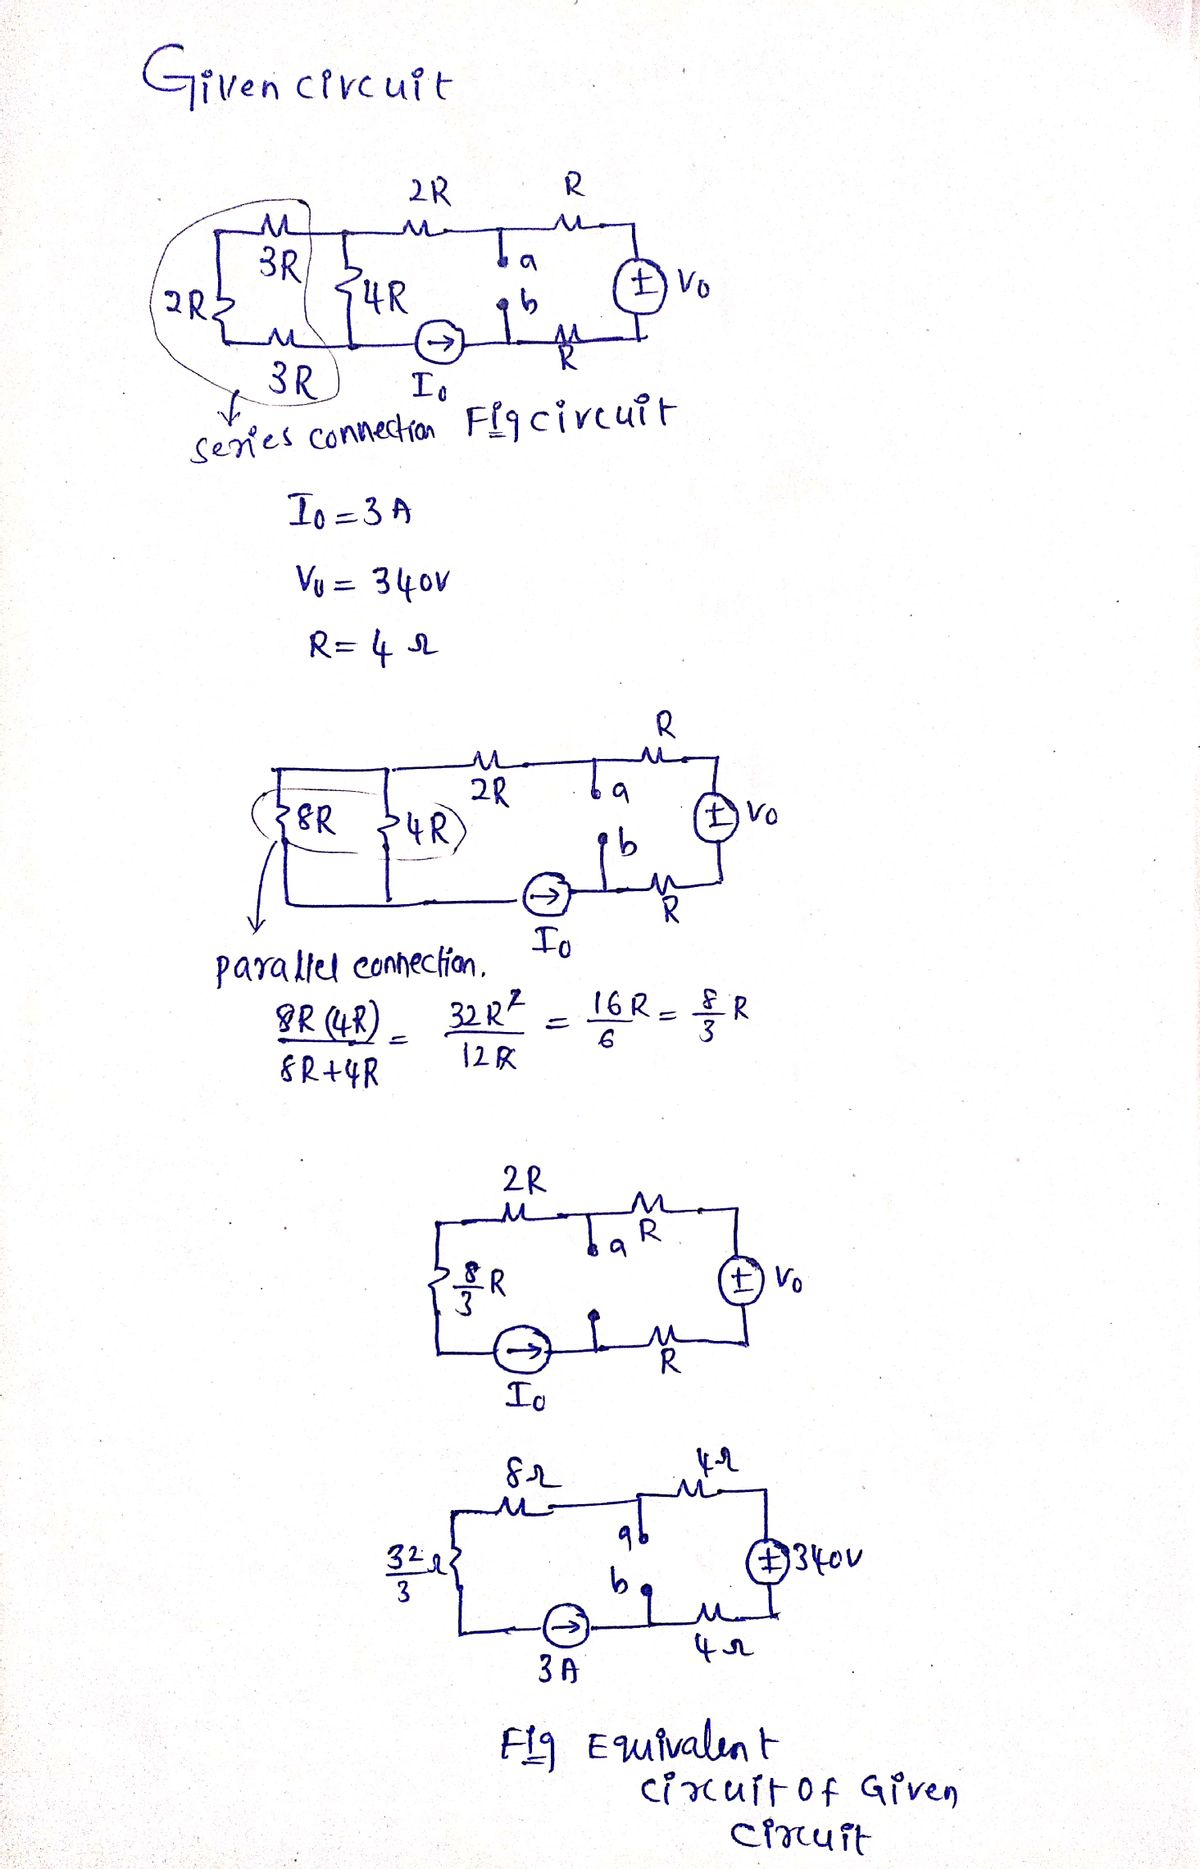 Given circuit
2R R
3R a
2R 4R b ± V0
R
3R I0
series connection Fig circuit
I0 = 3 A
V0 = 340V
R = 4 Ω
R
2R a
8R 4R b ± V0
R
I0
parallel connection.
8R (4R) / 8R+4R = 32R² / 12R = 16R / 6 = 8/3 R
2R
a R
8/3 R ± V0
R
I0
8Ω 4Ω
a
32/3 Ω b ± 340V
4Ω
3 A
Fig Equivalent
circuit of Given
circuit